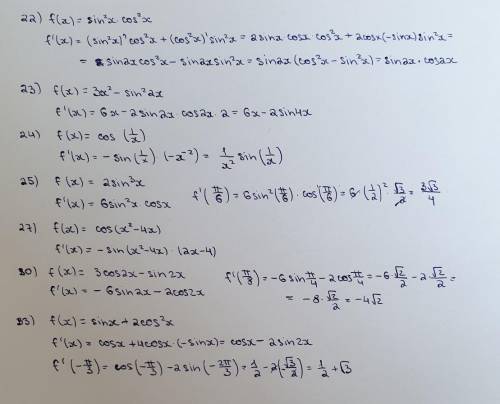 22) f(x) = sin²x cos²x
f'(x) = (sin²x)' cos²x + (cos²x)' sin²x = 2sinx cosx · cos²x + 2cosx(-sinx)sin²x =
= sin2x cos²x - sin2x sin²x = sin2x (cos²x - sin²x) = sin2x · cos2x
23) f(x) = 3x² - sin²2x
f'(x) = 6x - 2sin2x · cos2x · 2 = 6x - 2sin4x
24) f(x) = cos (1/x)
f'(x) = -sin(1/x) · (-x⁻²) = 1/x² sin(1/x)
25) f(x) = 2sin³x
f'(x) = 6sin²x · cosx f'(π/6) = 6sin²(π/6) · cos(π/6) = 6 · (1/2)² · √3/2 = 3√3/4
27) f(x) = cos(x²-4x)
f'(x) = -sin(x²-4x) · (2x-4)
30) f(x) = 3cos2x - sin2x f'(π/8) = -6sin π/4 - 2cos π/4 = -6·√2/2 - 2·√2/2 =
f'(x) = -6sin2x - 2cos2x = -8·√2/2 = -4√2
33) f(x) = sinx + 2cos²x
f'(x) = cosx + 4cosx · (-sinx) = cosx - 2sin2x
f'(-π/3) = cos(-π/3) - 2sin(-2π/3) = 1/2 - 2(-√3/2) = 1/2 + √3